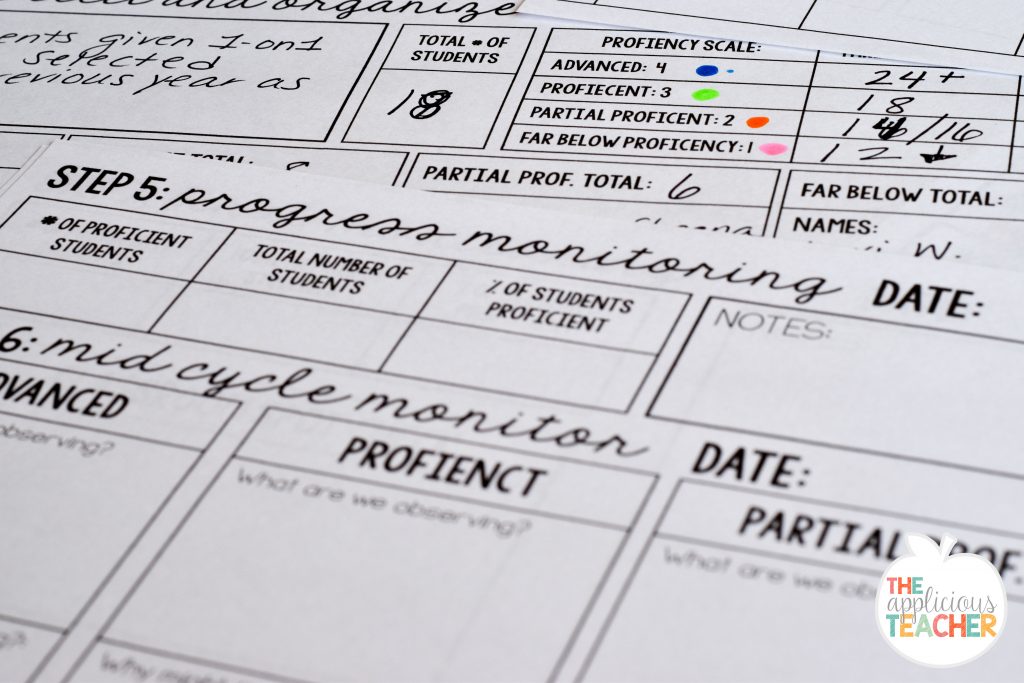 and organize
given 1-on1
selected
year as
TOTAL # OF
STUDENTS
18
PROFIENCY SCALE:
ADVANCED: 4
24+
PROFIECENT: 3
18
PARTIAL PROFICENT: 2
/16
FAR BELOW PROFICENCY: 1
12
PARTIAL PROF. TOTAL: 6
FAR BELOW TOTAL:
NAMES:
W.
STEP 5: progress monitoring DATE:
# OF PROFICIENT
STUDENTS
TOTAL NUMBER OF
STUDENTS
% OF STUDENTS
PROFICIENT
NOTES:
6: mid cycle monitor DATE:
ADVANCED
observing?
PROFIENCT
What are we observing?
PARTIAL PROF.
What are we
Why might
THE
applicious
TEACHER